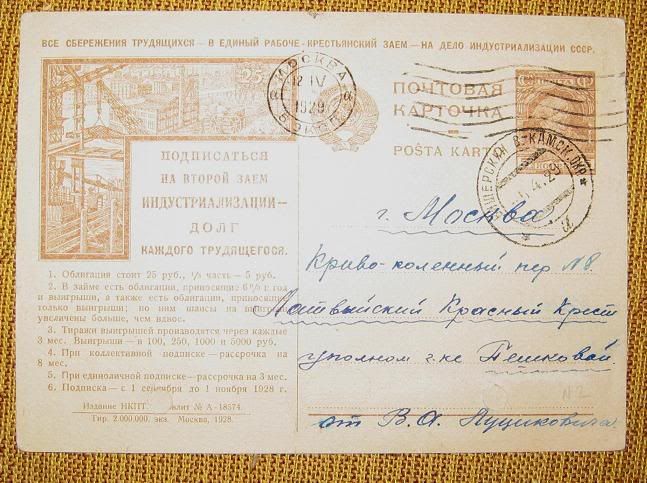 ВСЕ СБЕРЕЖЕНИЯ ТРУДЯЩИХСЯ — В ЕДИНЫЙ РАБОЧЕ-КРЕСТЬЯНСКИЙ ЗАЕМ — НА ДЕЛО ИНДУСТРИАЛИЗАЦИИ СССР.
25
МОСКВА
12 IV
1929
ПОЧТОВАЯ
КАРТОЧКА
POŜTA KARTO
ПОЧТА
ПОДПИСАТЬСЯ
НА ВТОРОЙ ЗАЕМ
ИНДУСТРИАЛИЗАЦИИ—
ДОЛГ
КАЖДОГО ТРУДЯЩЕГОСЯ.
В-КАМСК. ОКР
4.29
г. Москва
Криво-коленный пер №8.
Латвийский Красный Крест
уполном г-ке Пешковой
от В. А. Пуциковича
№2
1. Облигация стоит 25 руб., 1/5 часть — 5 руб.
2. В займе есть облигации, приносящие 6% в год
и выигрыши, а также есть облигации, приносящие
только выигрыши; по ним шансы на выигрыш
увеличены больше, чем вдвое.
3. Тиражи выигрышей производятся через каждые
3 мес. Выигрыши — в 100, 250, 1000 и 5000 руб.
4. При коллективной подписке — рассрочка на
8 мес.
5. При единоличной подписке — рассрочка на 3 мес.
6. Подписка — с 1 сентября до 1 ноября 1928 г.
Издание НКПТ. лит № А-18574.
Тир. 2.000.000. экз. Москва, 1928.